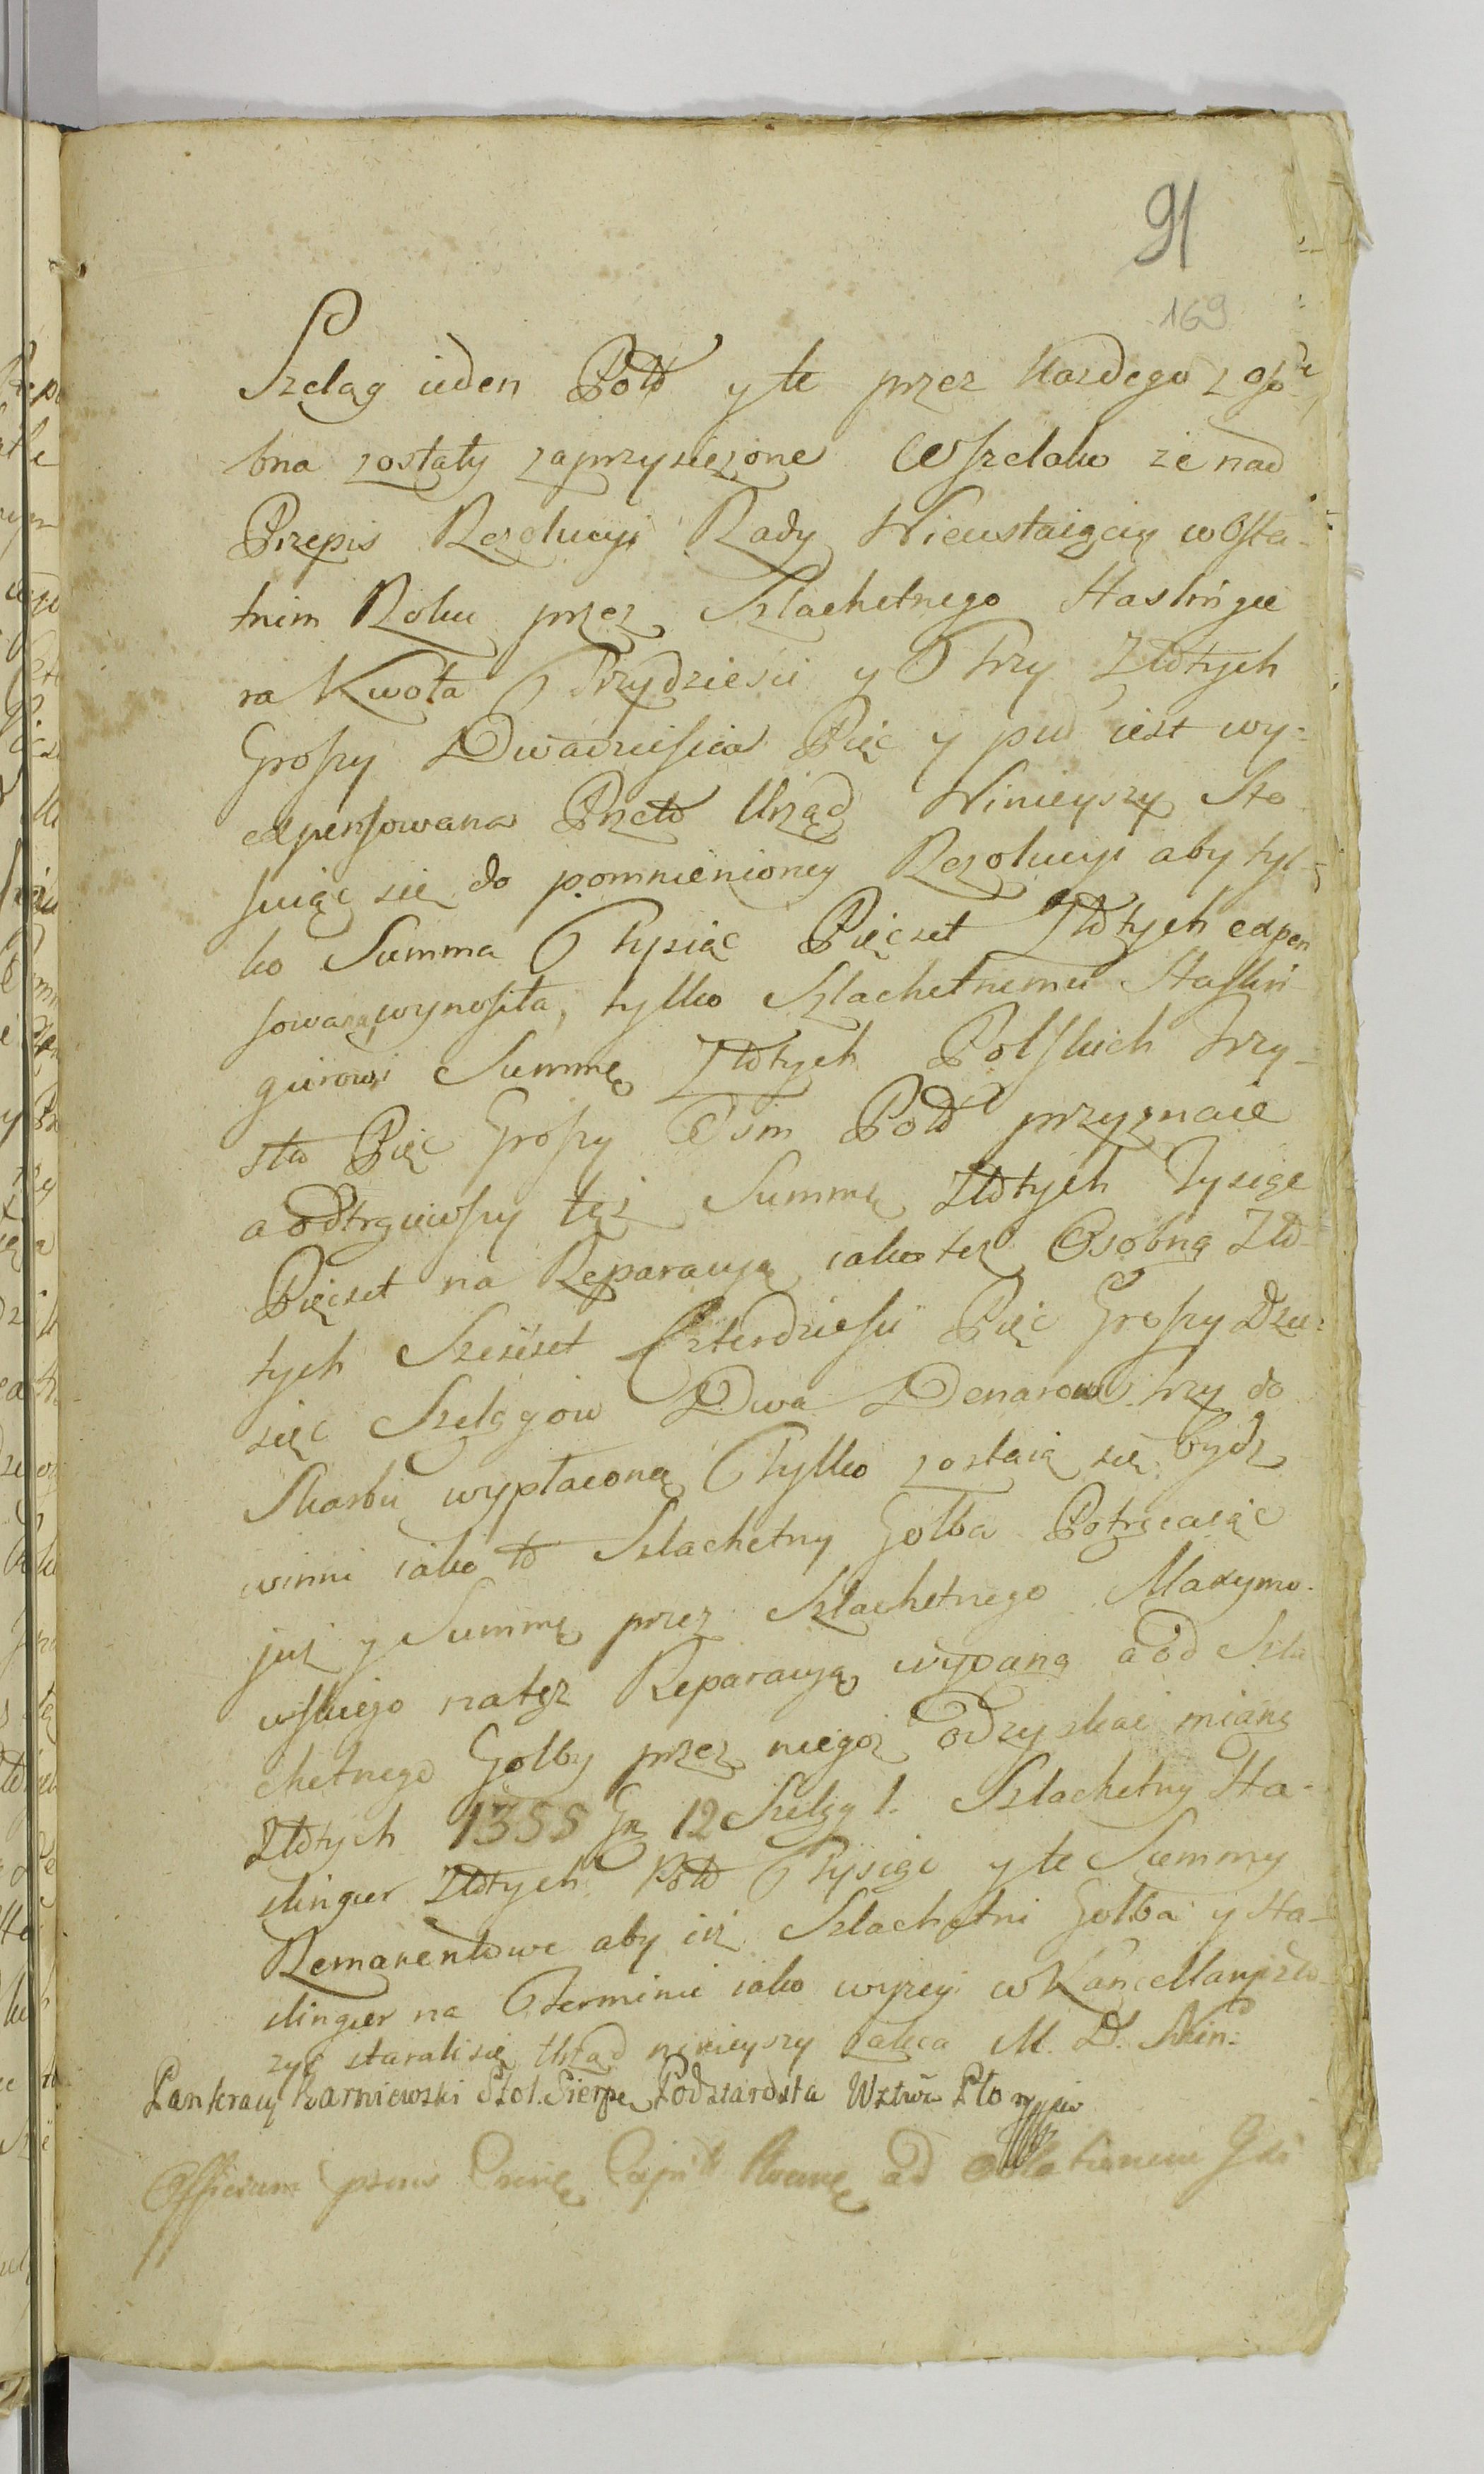 91
169
Szeląg ieden Poło y te przez Kazdego z oso-
bna zostały zaprzysiężone Wszelako że nad
Przepis Rezolucyi Rady Nieustaiącey w Osta-
tnim Roku przez Szlachetnego Haslingie
ra Kwota Trzydziesci y Trzy Złotych
Groszy Dwadziescia Pięć y puł iest wy-
expensowana Przeto Urząd Ninieyszy Sto
suiąc się do pomnienioney Rezolucyi aby tyl-
ko Summa Tysiąc Pięcset Złotych expen
sowaną wynosiła, tylko Szlachetnemu Haslin
gierowi Summę Złotych Polskich trzy-
sta Pięć Groszy Osm Poło przyznaie
a odtrąciwszy tęż Summę złotych Tysiąc
Pięcset na Reparacyą iako też Osobną Zło-
tych Szescset Czterdziesci Pięć Groszy Dzie-
sięc Szelągow Dwa Denarow trzy do
Skarbu wypłaconą Tylko zostaią się bydź
winni iako to Szlachetny Golba Potrącaiąc
już y Summę przez Szlachetnego Maxymo-
wskiego na też Reparacyą wydaną a od Szla
chetnego Golby przez niegoż odzyskać mianą
Złotych 1355 Gr 12 Szeląg 1. Szlachetny Ha-
slingier Złotych Poło Tysiąc y te Summy
Remanentowe aby iiż Szlachetni Golba y Ha-
slingier na Terminie iako wyżey w Kancellaryi zło-
żyć starali się Urząd ninieyszy zaleca M. D.
Pankracy Karniewski Stol. Sierpe Podstarosta Wztwa Pło
Officium psens ad oblationem